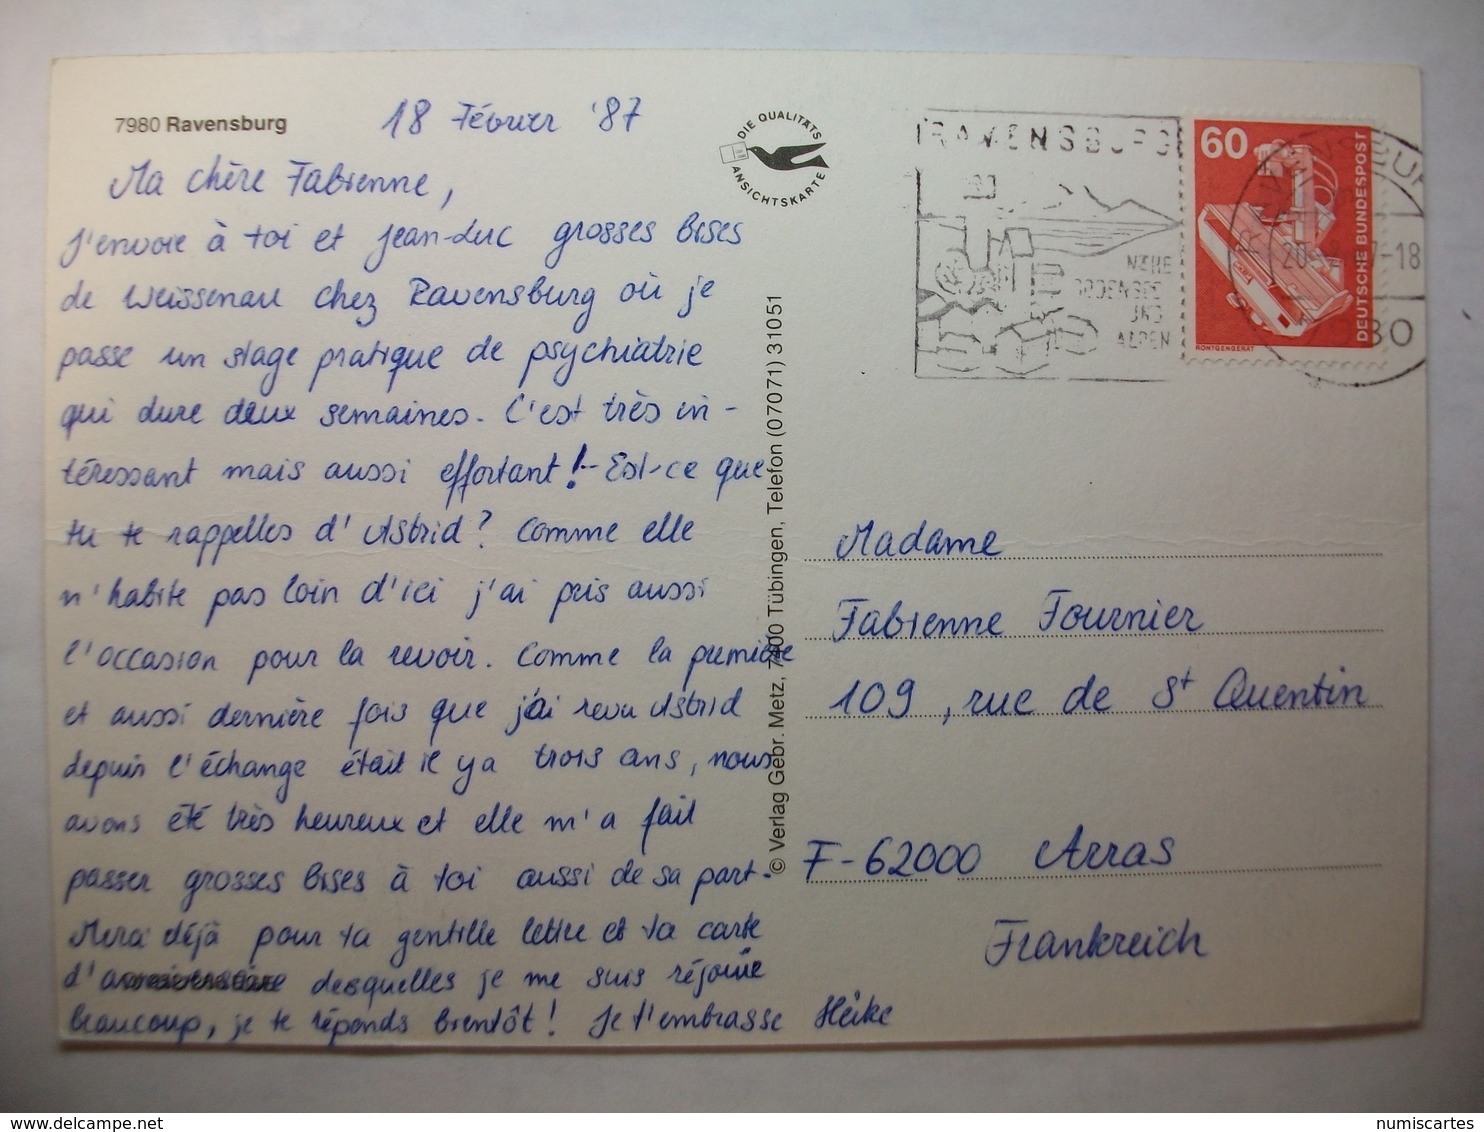 7980 Ravensburg
18 Février '87
Ma chère Fabienne,
J'envoie à toi et Jean-Luc grosses bises
de Weissenau chez Ravensburg où je
passe un stage pratique de psychiatrie
qui dure deux semaines. C'est très in-
téressant mais aussi effortant! - Est-ce que
tu te rappelles d'Astrid? Comme elle
n'habite pas loin d'ici j'ai pris aussi
l'occasion pour la revoir. Comme la première
et aussi dernière fois que j'ai revu Astrid
depuis l'échange était il y a trois ans, nous
avons été très heureux et elle m'a fait
passer grosses bises à toi aussi de sa part.
Merci déjà pour ta gentille lettre et ta carte
d'anniversaire desquelles je me suis réjouie
beaucoup, je te réponds bientôt! Je t'embrasse Heike
DIE QUALITÄTS
ANSICHTSKARTE
© Verlag Gebr. Metz, 7400 Tübingen, Telefon (07071) 31051
RAVENSBURG
NÄHE
BODENSEE
UND
ALPEN
60
DEUTSCHE BUNDESPOST
RÖNTGENGERÄT
Madame
Fabienne Fournier
109, rue de St Quentin
F-62000 Arras
Frankreich
numiscartes